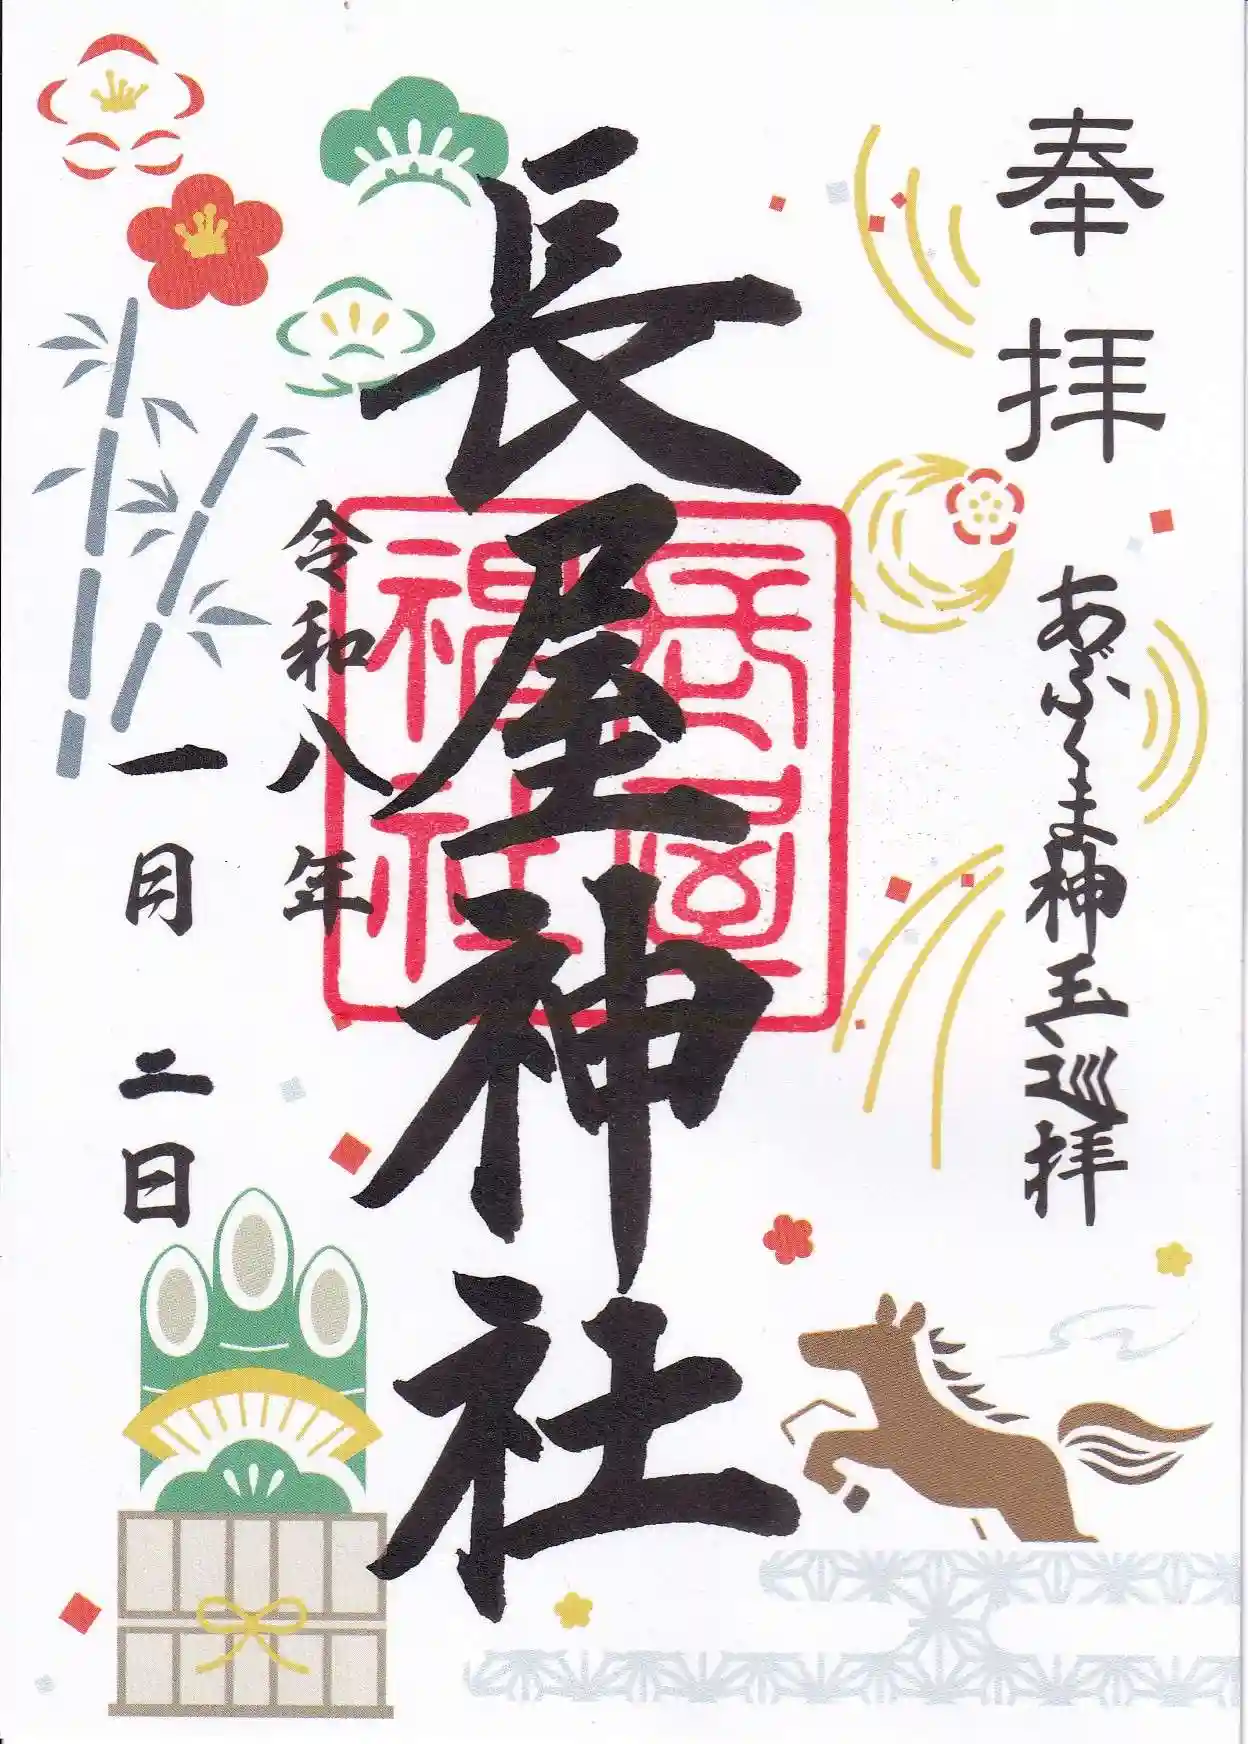 奉拝
あぶくま神玉巡拝
長屋神社
長屋神社
令和八年
一月二日